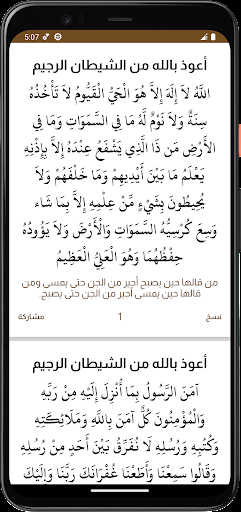 5:07
أعوذ بالله من الشيطان الرجيم
اللَّهُ لاَ إِلَهَ إِلاَّ هُوَ الْحَيُّ الْقَيُّومُ لاَ تَأْخُذُهُ
سِنَةٌ وَلاَ نَوْمٌ لَّهُ مَا فِي السَّمَوَاتِ وَمَا فِي
الأَرْضِ مَن ذَا الَّذِي يَشْفَعُ عِنْدَهُ إِلاَّ بِإِذْنِهِ
يَعْلَمُ مَا بَيْنَ أَيْدِيهِمْ وَمَا خَلْفَهُمْ وَلاَ
يُحِيطُونَ بِشَيْءٍ مِّنْ عِلْمِهِ إِلاَّ بِمَا شَاء
وَسِعَ كُرْسِيُّهُ السَّمَوَاتِ وَالأَرْضَ وَلاَ يَؤُودُهُ
حِفْظُهُمَا وَهُوَ الْعَلِيُّ الْعَظِيمُ
من قالها حين يصبح أجير من الجن حتى يمسى ومن
قالها حين يمسى أجير من الجن حتى يصبح.
نسخ 1 مشاركة
أعوذ بالله من الشيطان الرجيم
آمَنَ الرَّسُولُ بِمَا أُنْزِلَ إِلَيْهِ مِنْ رَبِّهِ
وَالْمُؤْمِنُونَ كُلٌّ آمَنَ بِاللَّهِ وَمَلَائِكَتِهِ
وَكُتُبِهِ وَرُسُلِهِ لَا نُفَرِّقُ بَيْنَ أَحَدٍ مِنْ رُسُلِهِ
وَقَالُوا سَمِعْنَا وَأَطَعْنَا غُفْرَانَكَ رَبَّنَا وَإِلَيْكَ